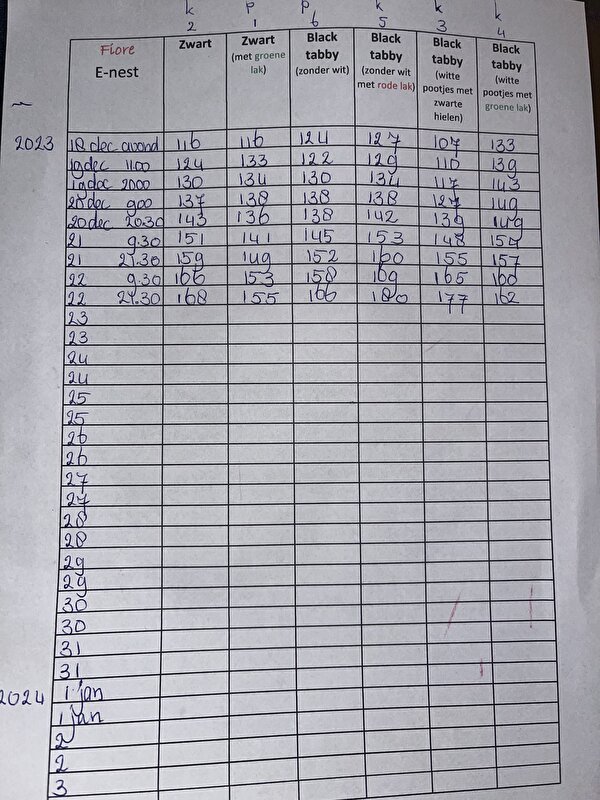 k p p k k k
2 1 6 5 3 4
Fiore E-nest Zwart Zwart (met groene lak) Black tabby (zonder wit) Black tabby (zonder wit met rode lak) Black tabby (witte pootjes met zwarte hielen) Black tabby (witte pootjes met groene lak)
2023 18 dec avond 116 116 124 127 107 133
19 dec 11.00 124 133 122 129 110 139
19 dec 20.00 130 134 130 134 117 143
20 dec 9.00 137 138 138 138 127 149
20 dec 20.30 143 136 138 142 139 149
21 9.30 151 141 145 153 148 154
21 21.30 159 149 152 160 155 157
22 9.30 166 153 158 169 165 160
22 21.30 168 155 166 180 177 162
23
23
24
24
25
25
26
26
27
27
28
28
29
29
30
30
31
31
2024 1 jan
1 jan
2
2
3